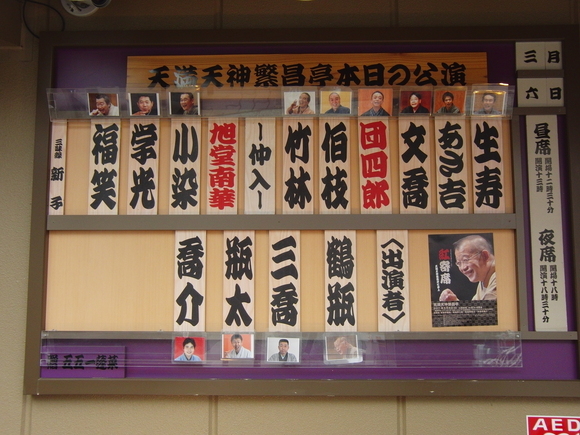 天満天神繁昌亭本日の公演
三月
六日
昼席
開場十二時三十分
開演十三時
夜席
開場十八時
開演十八時三十分
生寿
あさ吉
文喬
団四郎
伯枝
竹林
〜仲入〜
旭堂南華
小染
学光
福笑
三味線
新子
〈出演者〉
鶴瓶
三喬
瓶太
喬介
寄席
AED